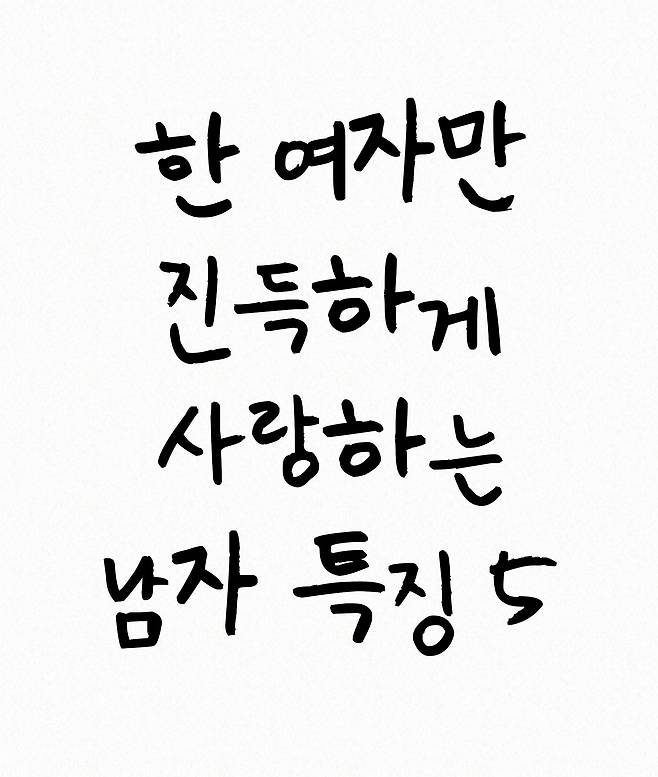 한 여자만
진득하게
사랑하는
남자 특징 5